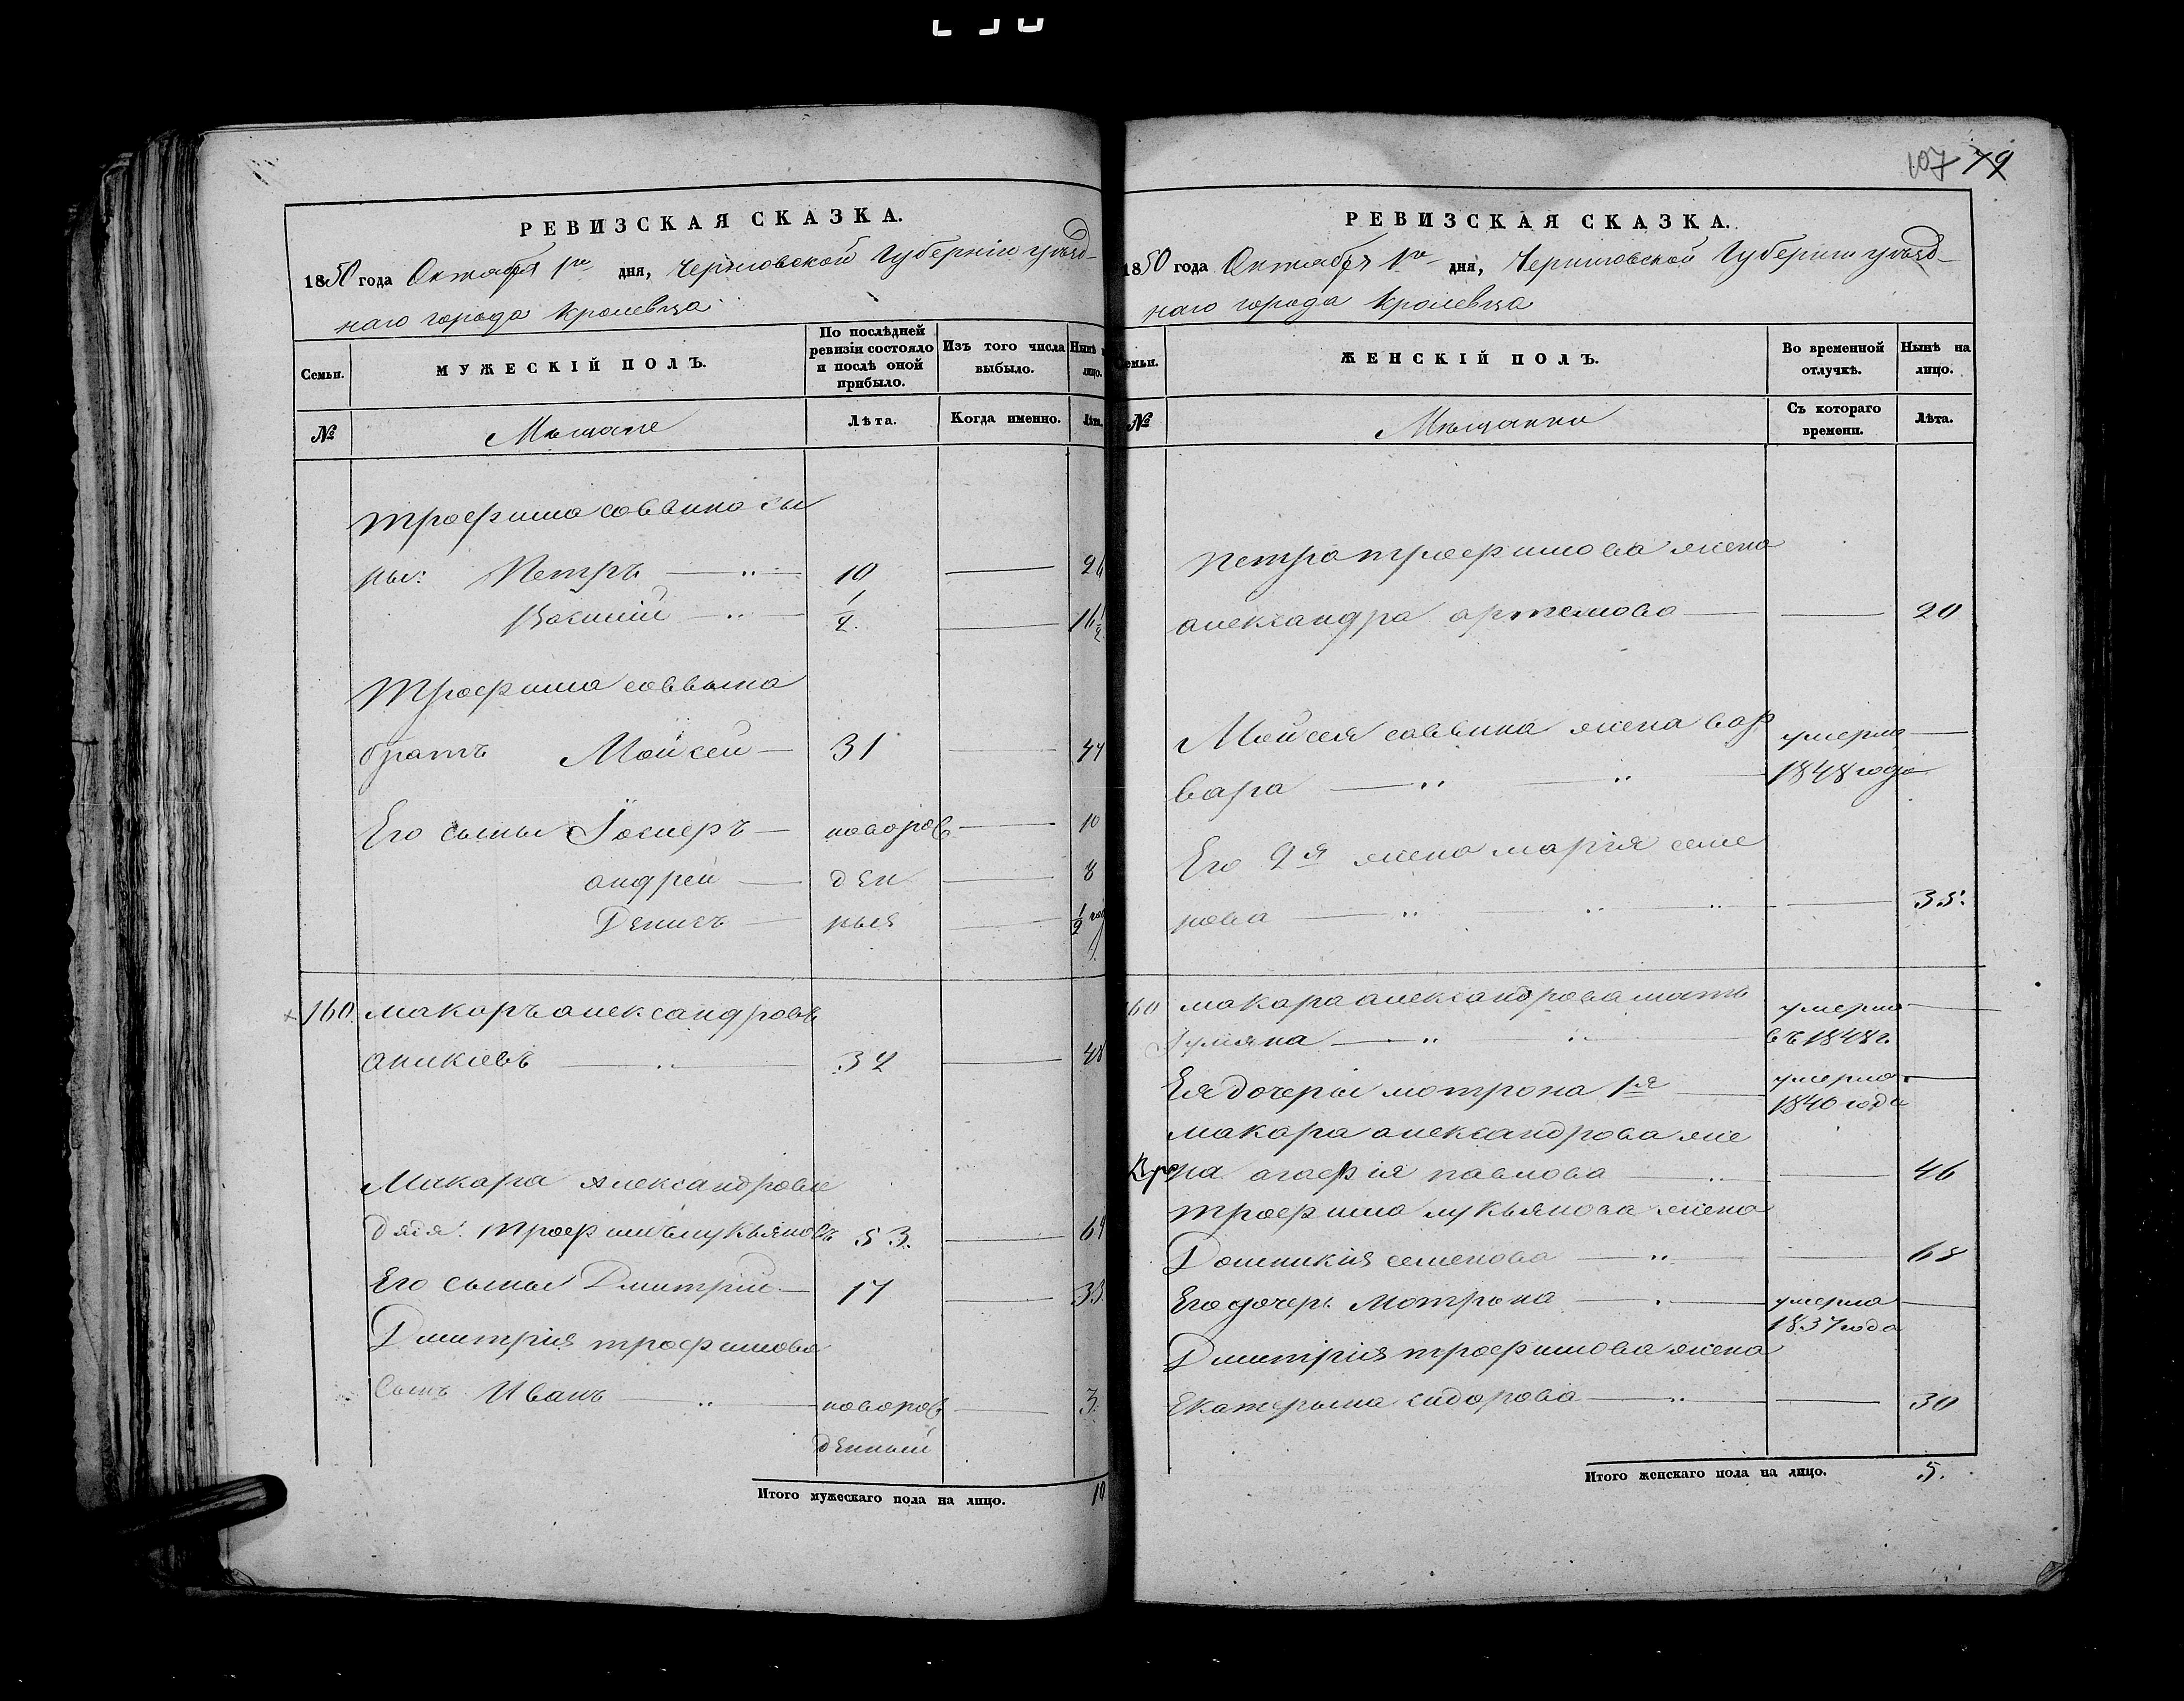 107 79
РЕВИЗСКАЯ СКАЗКА.
1850 года Октября 1го дня, Черниговской Губерніи уѣзд-
наго города Кролевца
Семьи. МУЖЕСКІЙ ПОЛЪ. По послѣдней ревизіи состояло и послѣ оной прибыло. Изъ того числа выбыло. Нынѣ на лицо.
№ Мѣщане Лѣта. Когда именно. Лѣта.
Трофима саввина сы
ны: Петръ 10 26
Василій 1/2 16 1/2
Трофима саввина
братъ Мойсей 31 47
Его сыны Іосифъ новорож 10
андрей ден 8
Денисъ ныя 1/2 год
160. макаръ александровъ
аникіевъ 32 48
Макара Александрова
дядя: трофимъ лукьяновъ 53. 69
Его сыны Дмитрій 17 33
Дмитрія трофимова
Сынъ Иванъ новорож 3.
денный
Итого мужескаго пола на лицо. 10
РЕВИЗСКАЯ СКАЗКА.
1850 года Октября 1го дня, Черниговской Губерніи уѣзд-
наго города Кролевца
Семьи. ЖЕНСКІЙ ПОЛЪ. Во временной отлучкѣ. Нынѣ на лицо.
№ Мѣщанки Съ котораго времени. Лѣта.
Петра трофимова жена
александра артемова 20
Мойсея саввина жена вар умерла
вара 1848 года
Его 2я жена марія семе
нова 35.
160 макара александрова мать умерла
въ 1848 г.
Ея дочери мотрона 1я умерла
1840 года
макара александрова же
на агафія павлова 46
трофима лукьянова жена
Домникія семенова 68
Его дочерь Мотрона умерла
1837 года
Дмитрія трофимова жена
Екатерина сидорова 30
Итого женскаго пола на лицо. 5.